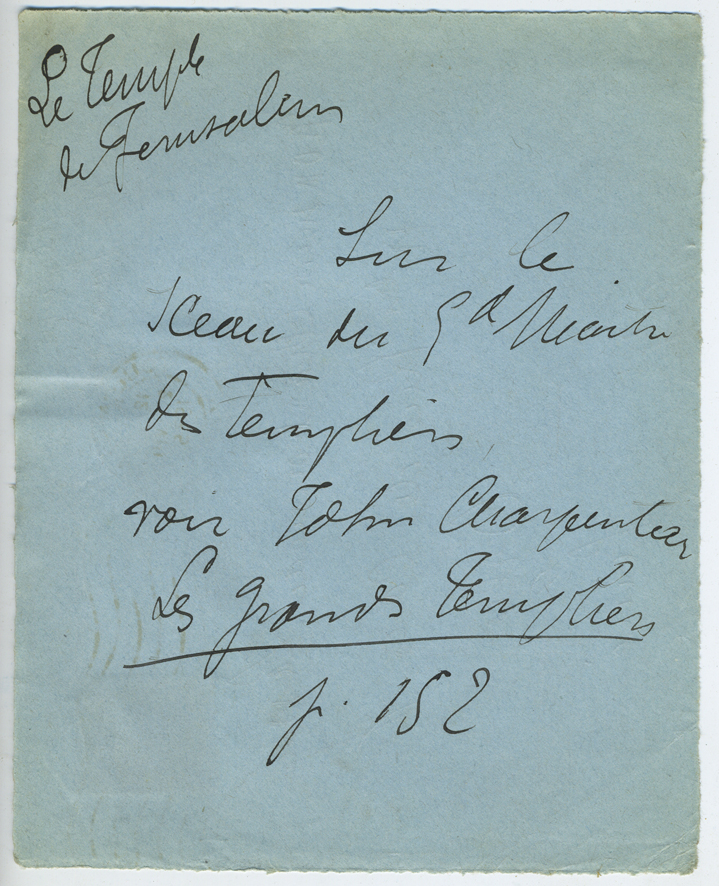 Le Temple
de Jerusalem
Sur le
Sceau du Gd Maitre
des Templiers
voir John Charpentier
Les grands Templiers
p. 152